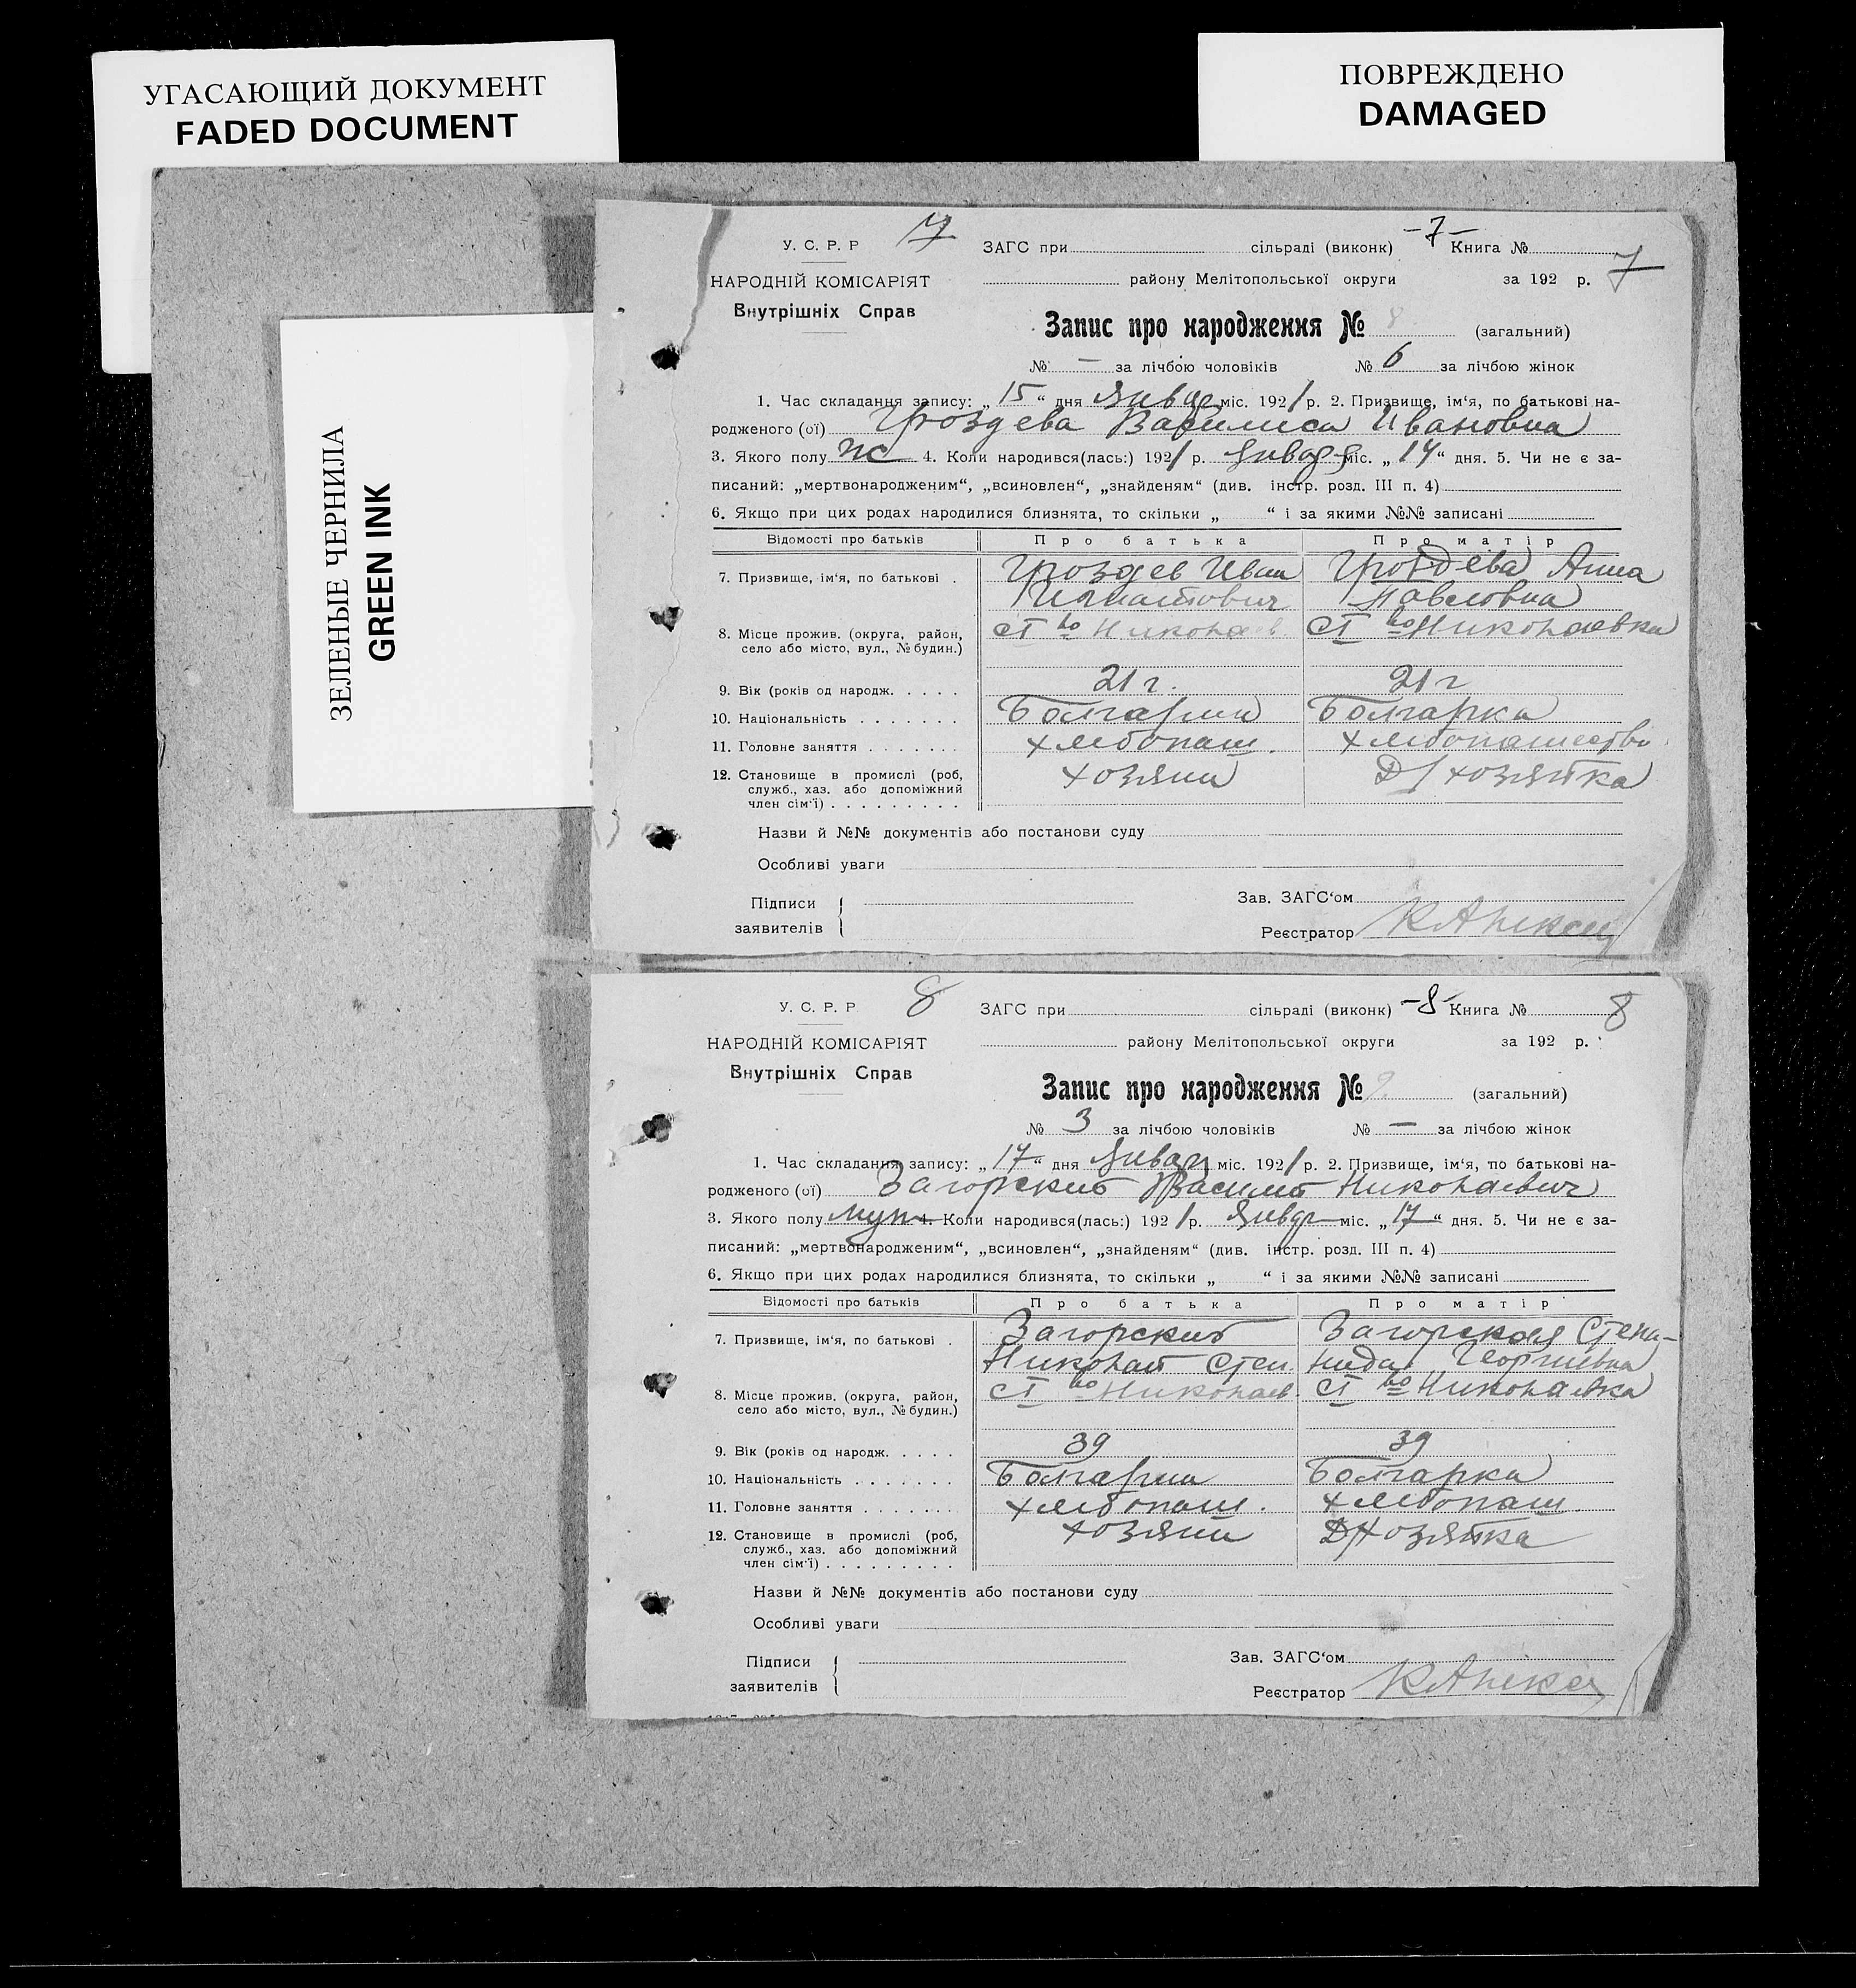 УГАСАЮЩИЙ ДОКУМЕНТ
FADED DOCUMENT
ПОВРЕЖДЕНО
DAMAGED
ЗЕЛЕНЫЕ ЧЕРНИЛА
GREEN INK
У. С. Р. Р 7 ЗАГС при сільраді (виконк) -7- Книга №
НАРОДНІЙ КОМІСАРІЯТ району Мелітопольської округи за 192 р. 7
Внутрішніх Справ
Запис про народження № 8 (загальний)
№ — за лічбою чоловіків № 6 за лічбою жінок
1. Час складання запису: „15“ дня Январ міс. 1921 р. 2. Призвище, ім‘я, по батькові на-
родженого (ої) Гроздева Василиса Ивановна
3. Якого полу ж 4. Коли народився(лась:) 1921 р. Январ міс. „14“ дня. 5. Чи не є за-
писаний: „мертвонародженим“, „всиновлен“, „знайденям“ (див. інстр. розд. III п. 4)
6. Якщо при цих родах народилися близнята, то скільки „ “ і за якими №№ записані
Відомості про батьків Про батька Про матір
7. Призвище, ім‘я, по батькові . Гроздев Иван Гроздева Анна
Игнатович Павловна
8. Місце прожив. (округа, район, ст во Николаев ст во Николаевка
село або місто, вул., № будин.)
9. Вік (років од народж. . . . . 21 г. 21 г
10. Національність . . . . . . . Болгарин Болгарка
11. Головне заняття . . . . . . . хлебопаш. хлебопашество
12. Становище в промислі (роб, хозяин Д/хозяйка
служб., хаз. або допоміжний
член сім‘ї) . . . . . . . . .
Назви й №№ документів або постанови суду
Особливі уваги
Підписи Зав. ЗАГС‘ом
заявителів Реєстратор
У. С. Р. Р 8 ЗАГС при сільраді (виконк) -8- Книга № 8
НАРОДНІЙ КОМІСАРІЯТ району Мелітопольської округи за 192 р.
Внутрішніх Справ
Запис про народження № 9 (загальний)
№ 3 за лічбою чоловіків № — за лічбою жінок
1. Час складання запису: „17“ дня Январ міс. 1921 р. 2. Призвище, ім‘я, по батькові на-
родженого (ої) Загорский Василий Николаевич
3. Якого полу муж 4. Коли народився(лась:) 1921 р. Январ міс. „17“ дня. 5. Чи не є за-
писаний: „мертвонародженим“, „всиновлен“, „знайденям“ (див. інстр. розд. III п. 4)
6. Якщо при цих родах народилися близнята, то скільки „ “ і за якими №№ записані
Відомості про батьків Про батька Про матір
7. Призвище, ім‘я, по батькові . Загорский Загорская Степа-
Николай Степ. нида Георгиевна
8. Місце прожив. (округа, район, ст во Николаев. ст во Николаевка
село або місто, вул., № будин.)
9. Вік (років од народж. . . . . 39 39
10. Національність . . . . . . . Болгарин Болгарка
11. Головне заняття . . . . . . . хлебопаш. хлебопаш.
12. Становище в промислі (роб, хозяин Д/хозяйка
служб., хаз. або допоміжний
член сім‘ї) . . . . . . . . .
Назви й №№ документів або постанови суду
Особливі уваги
Підписи Зав. ЗАГС‘ом
заявителів Реєстратор